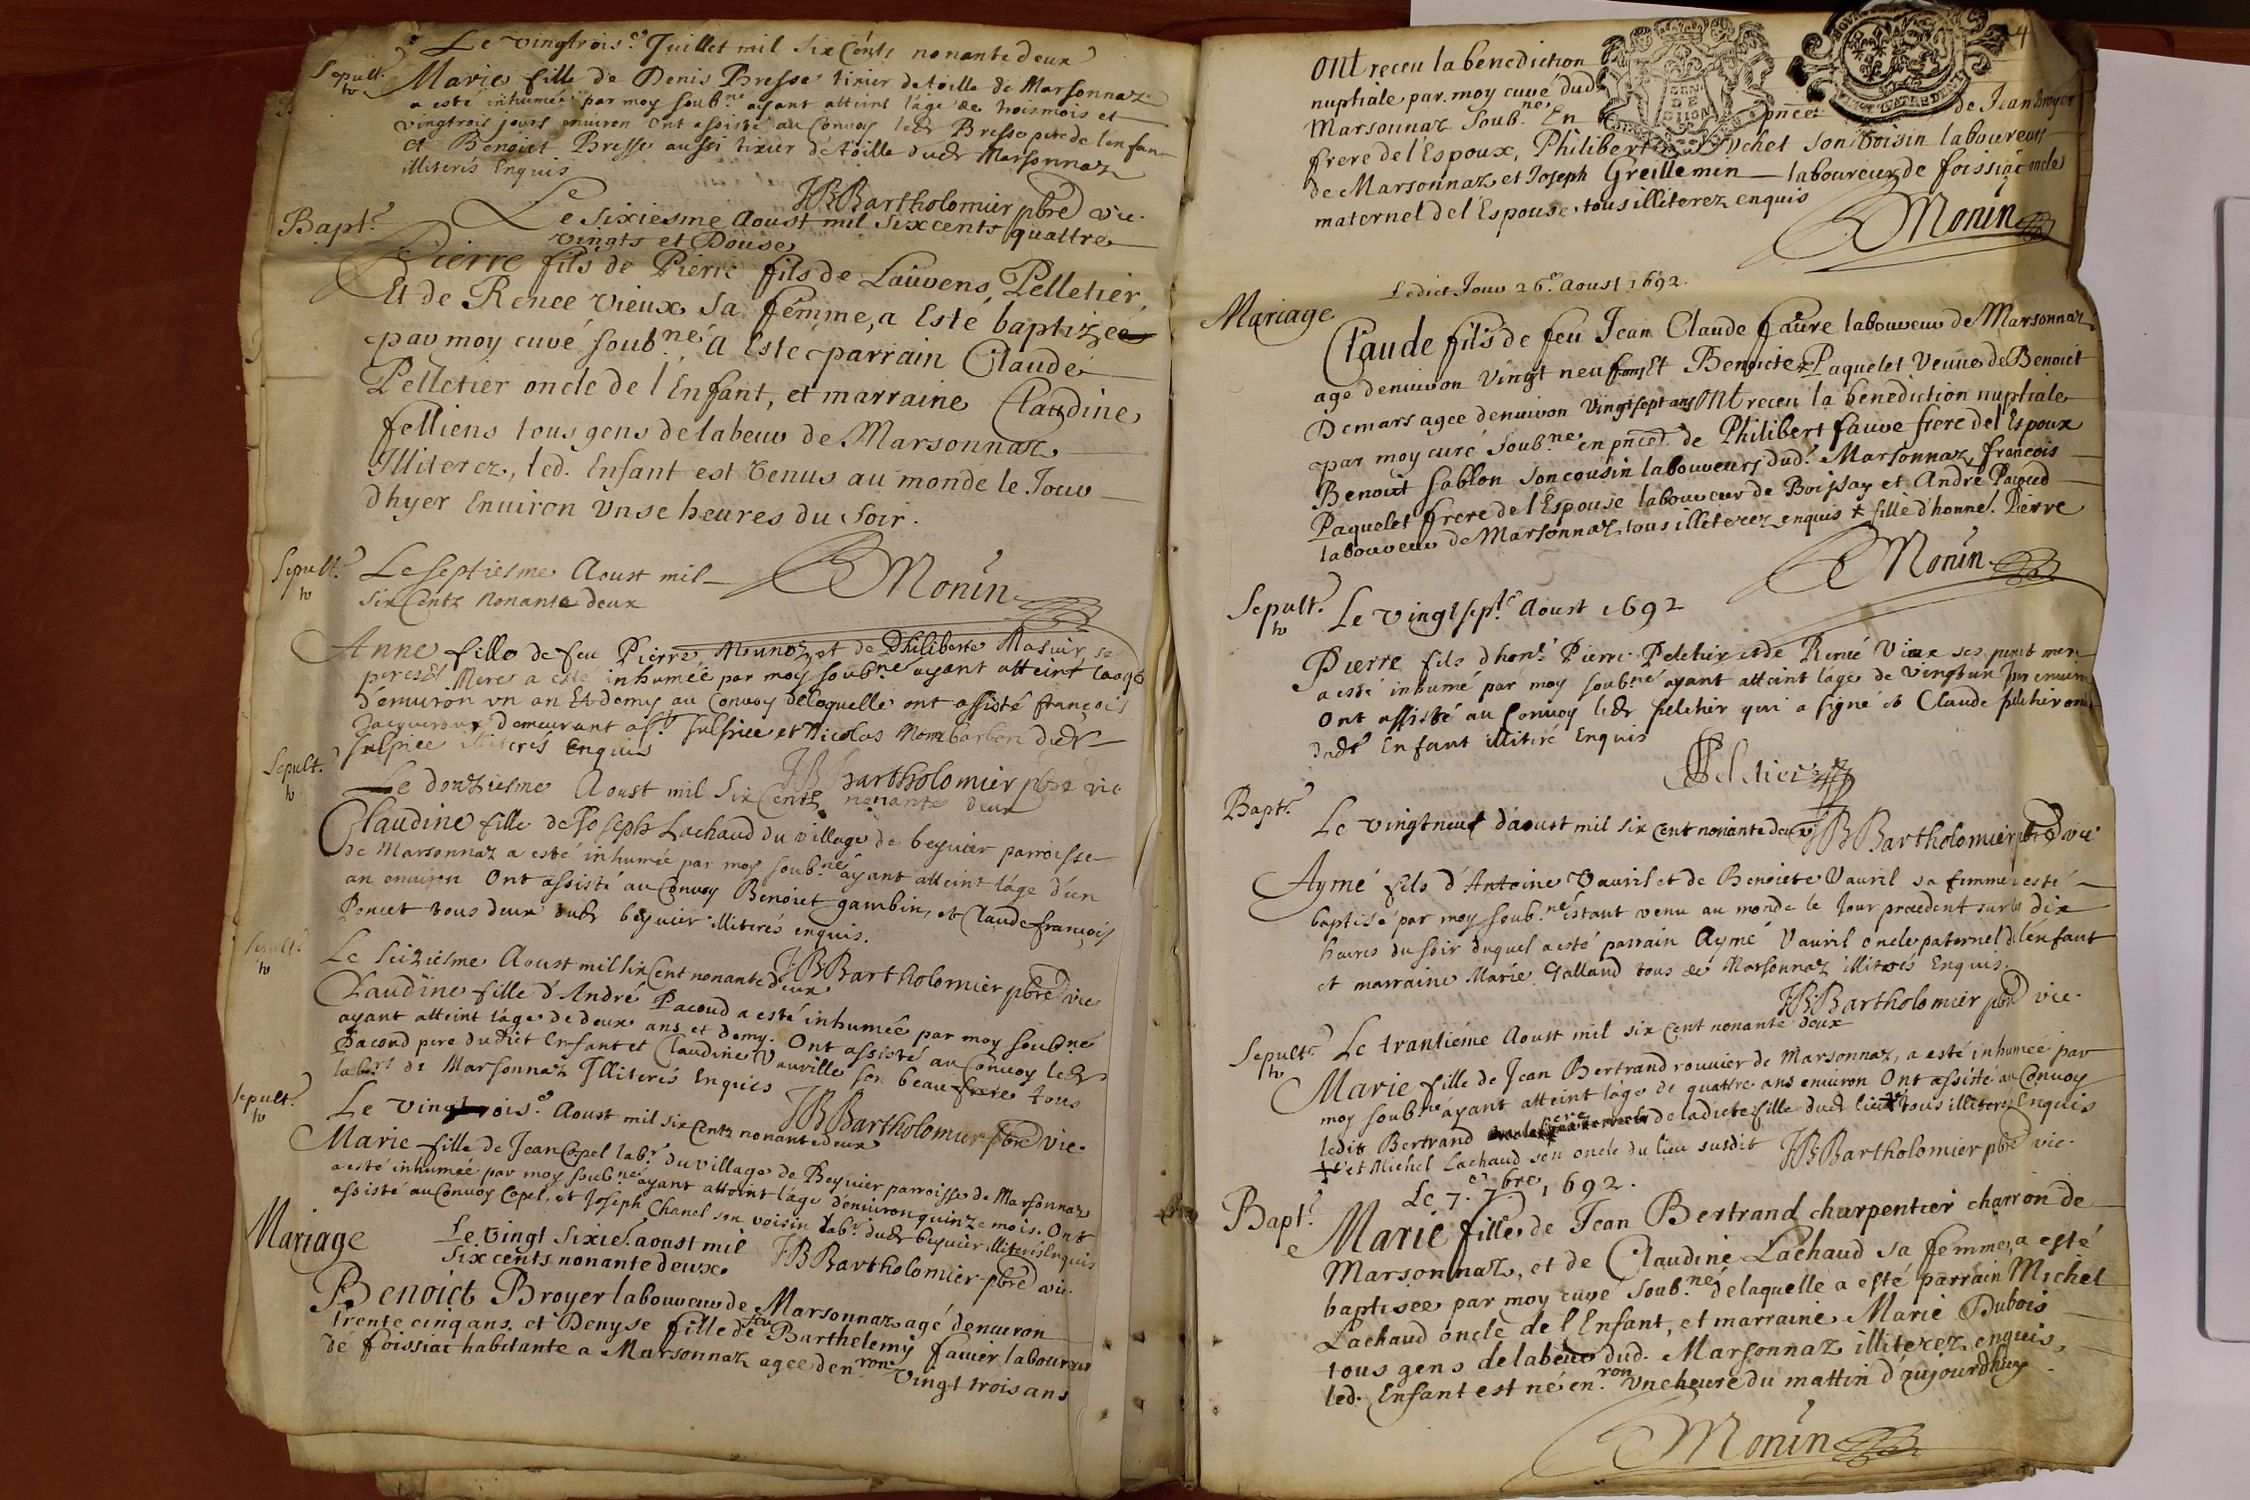 Le vingtrois.e Juillet mil Six Cents nonante deux
Sepult.re
Marie fille de Denis Bresse tixier de toille de Marsonnaz
a esté inhumée par moy soub.ne ayant atteint l'âge de trois mois et
vingtrois jours enuiron Ont assisté au Convoy led.t Bresse pere de l'enfan
et Benoict Bresse aussi tixier de toille dud.t Marsonnaz
illiterés Enquis
JB Bartholomier pbre vic.
Bapt.e
Le Sixiesme Aoust mil Six cents quattre
vingts et Douse
Pierre fils de Pierre fils de Lauvens Pelletier,
Et de Renee vieux sa femme, a Esté baptizée
par moy curé soub.né, A Esté parrain Claude
Pelletier oncle de l'Enfant, et marraine Claudine
felliens tous gens de labeur de Marsonnaz
Illiterez, led. Enfant est venus au monde le Jour
dhyer Enuiron Unse heures du soir.
Monin
Sepult.e
Le septiesme Aoust mil
six Centz Nonante deux
Anne fille de feu Pierre et de Philiberte Masuir se
peres Et Mere a esté inhumée par moy soub.ne ayant atteint laage
d'enuiron vn an Et demy au Convoy de laquelle ont assisté françois
Jacqueroux demeurant a S.t Sulpice et Nicolas Mombarbon dud.t
Sulpice illiterés Enquis
JB Bartholomier pbre vic
Sepult.
Le douziesme Aoust mil Six Centz nonante deux
Claudine fille de Joseph Lachaud du village de beyuier parroisse
de Marsonnaz a esté inhumée par moy soub.ne ayant atteint l'âge d'un
an enuiron Ont assisté au Convoy Benoict gambin, et Claude françois
Poncet tous deux dud.t beyuier illiterés enquis.
JB Bartholomier pbre vic
Sepult.
Le Seiziesme Aoust mil six Cent nonante deux
Claudine fille d'André Pacoud a esté inhumée par moy soub.né
ayant atteint l'âge de deux ans et demy. Ont assisté au Convoy led.t
Pacoud pere dudict Enfant et Claudine Vauville son beau frere tous
lab.rs de Marsonnaz Illiterés Enquis
JB Bartholomier pbre vic.
Sepult.
Le vingtrois.e Aoust mil six Centz nonante deux
Marie fille de Jean Copel lab.r du village de Beyuier parroisse de Marsonnaz
a esté inhumée par moy soub.ne ayant atteint l'âge d'enuiron quinze mois. Ont
assisté au Convoy Copel, et Joseph Chanel son voisin lab.r dud.t beyuier illiterés Enquis
JB Bartholomier pbre vic.
Mariage
Le Vingt sixie.e aoust mil
six cents nonante deux.
Benoict Broyer laboureur de Marsonnaz agé denuiron
trente cinq ans, et Denyse fille de feu Barthelemy fauier laboureur
de foissiat habitante a Marsonnaz agee den.ron vingt trois ans
4
Ont receu la benediction
nuptiale par moy curé dud
Marsonnaz soub.ne En pnce. de Jean Broyer
frere de l'Espoux, Philibert chet son voisin laboureurs
de Marsonnaz et Joseph Greillemin laboureur de foissiat oncle
maternel de l'Espouse, tous illiterez enquis
Monin
Ledict Jour 26.e Aoust 1692.
Mariage
Claude fils de feu Jean Claude faure laboureur de Marsonnaz
agé denuiron Vingt neuf ans Et Benoicte Paquelet Veuue de Benoict
Demars agee denuiron Vingt sept ans Ont receu la benediction nuptiale
par moy curé soub.ne en pnce. de Philibert faure frere de l'Espoux
Benoict sablon son cousin laboureurs dud. Marsonnaz, francois
Paquelet frere de l'Espouse laboureur de Boissay et André Pacoud
laboureur de Marsonnaz tous illiterez enquis + fille d'honne. Pierre
Monin
Sepult.e
Le vingt sept.e Aoust 1692
Pierre fils d'hon.e Pierre Peletier et de Renée Vieux ses pere et mere
a esté inhumé par moy soub.né ayant atteint l'âge de vingt un Jour enuiron
Ont assisté au Convoy led.t peletier qui a signé et Claude peletier oncle
dud.t Enfant illiteré Enquis
Peletier
JB Bartholomier pbre vic
Bapt.e
Le vingt neuf d'aoust mil six cent nonante deux
Aymé fils d'Antoine Vauril et de Benoicte Vauril sa femme a esté
baptisé par moy soub.ne estant venu au monde le Jour precedent sur les dix
heures du soir duquel a esté parrain Aymé Vauril oncle paternel de l'enfant
et marraine Marie Galland tous de Marsonnaz illiterés Enquis.
JB Bartholomier pbre vic.
Sepult.e
Le trantiéme Aoust mil six cent nonante deux
Marie fille de Jean Bertrand rouuier de Marsonnaz, a esté inhumée par
moy soub.ne ayant atteint l'âge de quattre ans enuiron Ont assisté au Convoy
ledit Bertrand pere de ladicte fille dud.t lieu + tous illiterés Enquis
+ et Michel Lachaud son oncle du lieu susdit
JB Bartholomier pbre vic.
Le 7.e 7bre 1692.
Bapt.e
Marie fille de Jean Bertrand charpentier charron de
Marsonnaz, et de Claudine Lachaud sa femme, a esté
baptisee par moy curé soub.ne de laquelle a esté parrain Michel
Lachaud oncle de l'Enfant, et marraine Marie Dubois
tous gens de labeur dud. Marsonnaz illiterez enquis,
led. Enfant est né en.ron Vne heure du mattin d'aujourdhuy
Monin